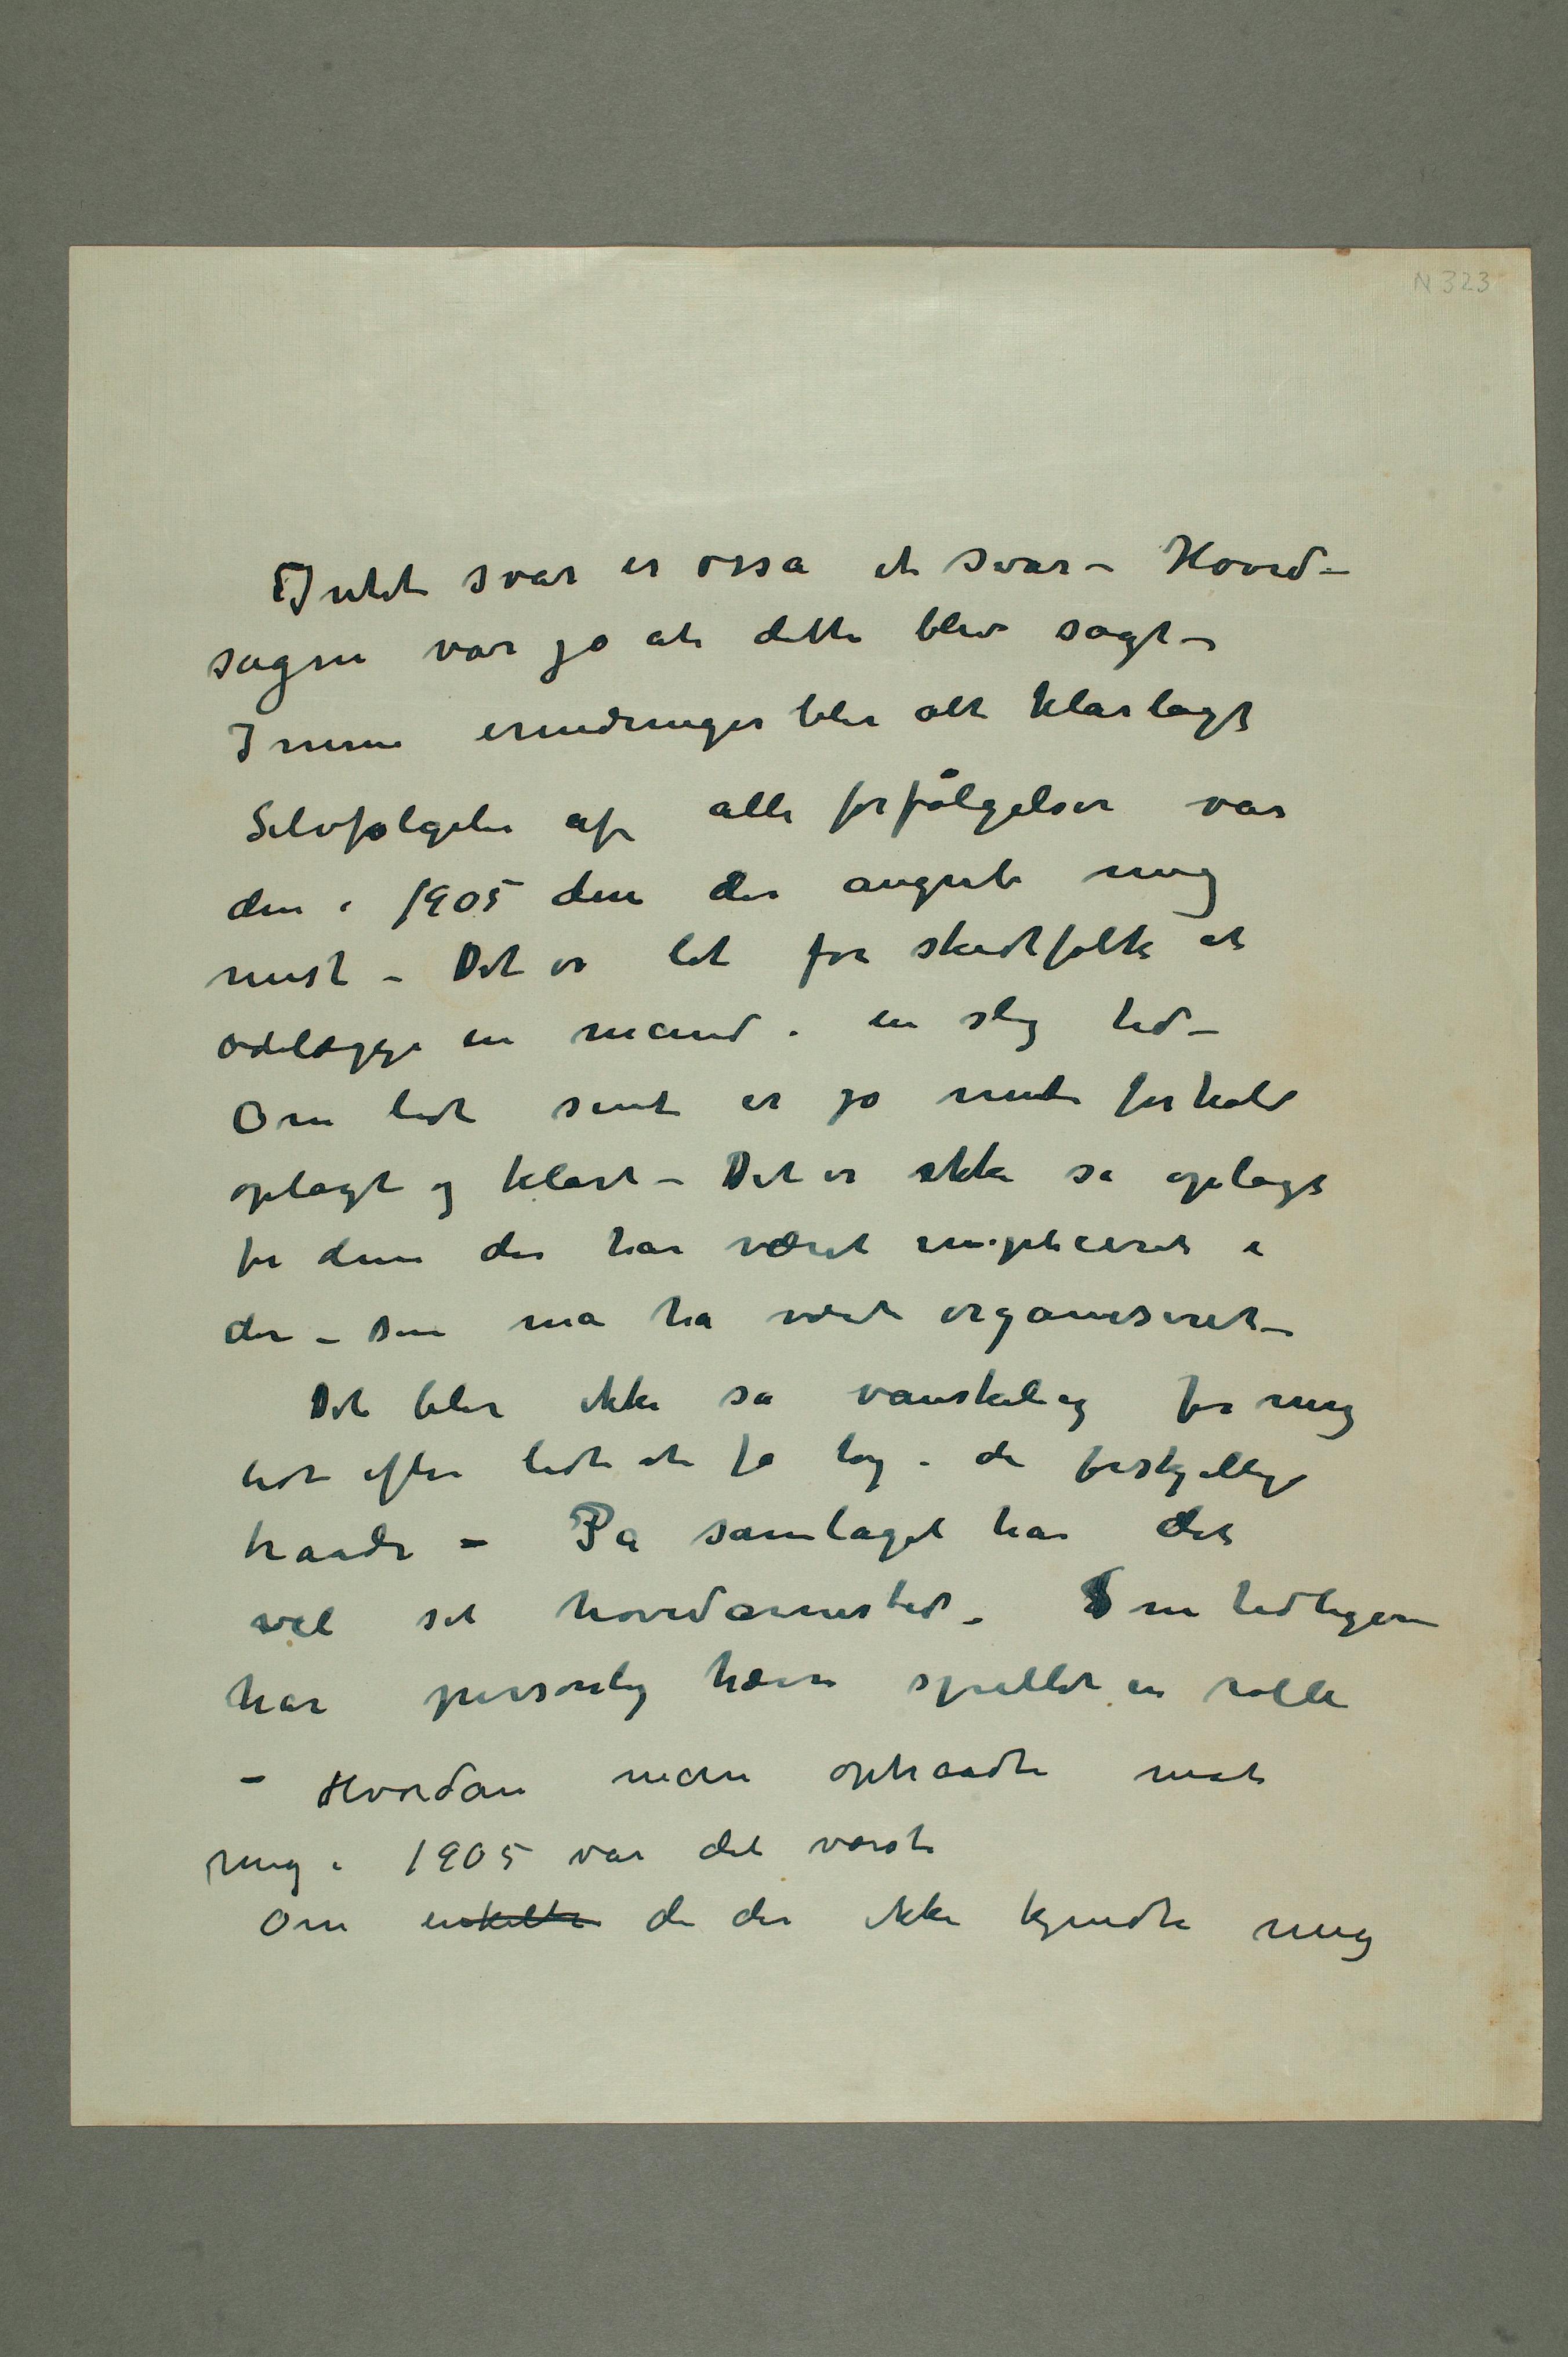 N 323
Intet svar er osså et svar – Hoved-
sagen var jo at dette blev sagt –
I mine erindringer blir alt klarlagt
Selvfølgelig af alle forfølgelser var
den i 1905 den der angreb mig
mest – Det er let for skidtfolk at
ødelægge en mand i en slig tid –
Om lidt sent er jo mit forhold
oplagt og klart – Det er ikke så oplagt
for dem der har været impliceret i
der – som må ha været organiseret –
Det blir ikke så vanskelig for mig
lidt efter lidt at få tag i de forskjellige
traade – På samlaget har det
vel sit hovedarnested – Som tidligere
har personlig hævn spillet en rolle
– Hvordan man optraadte mod
mig i 1905 var det værste
Om enkelte de der ikke kjendte mig